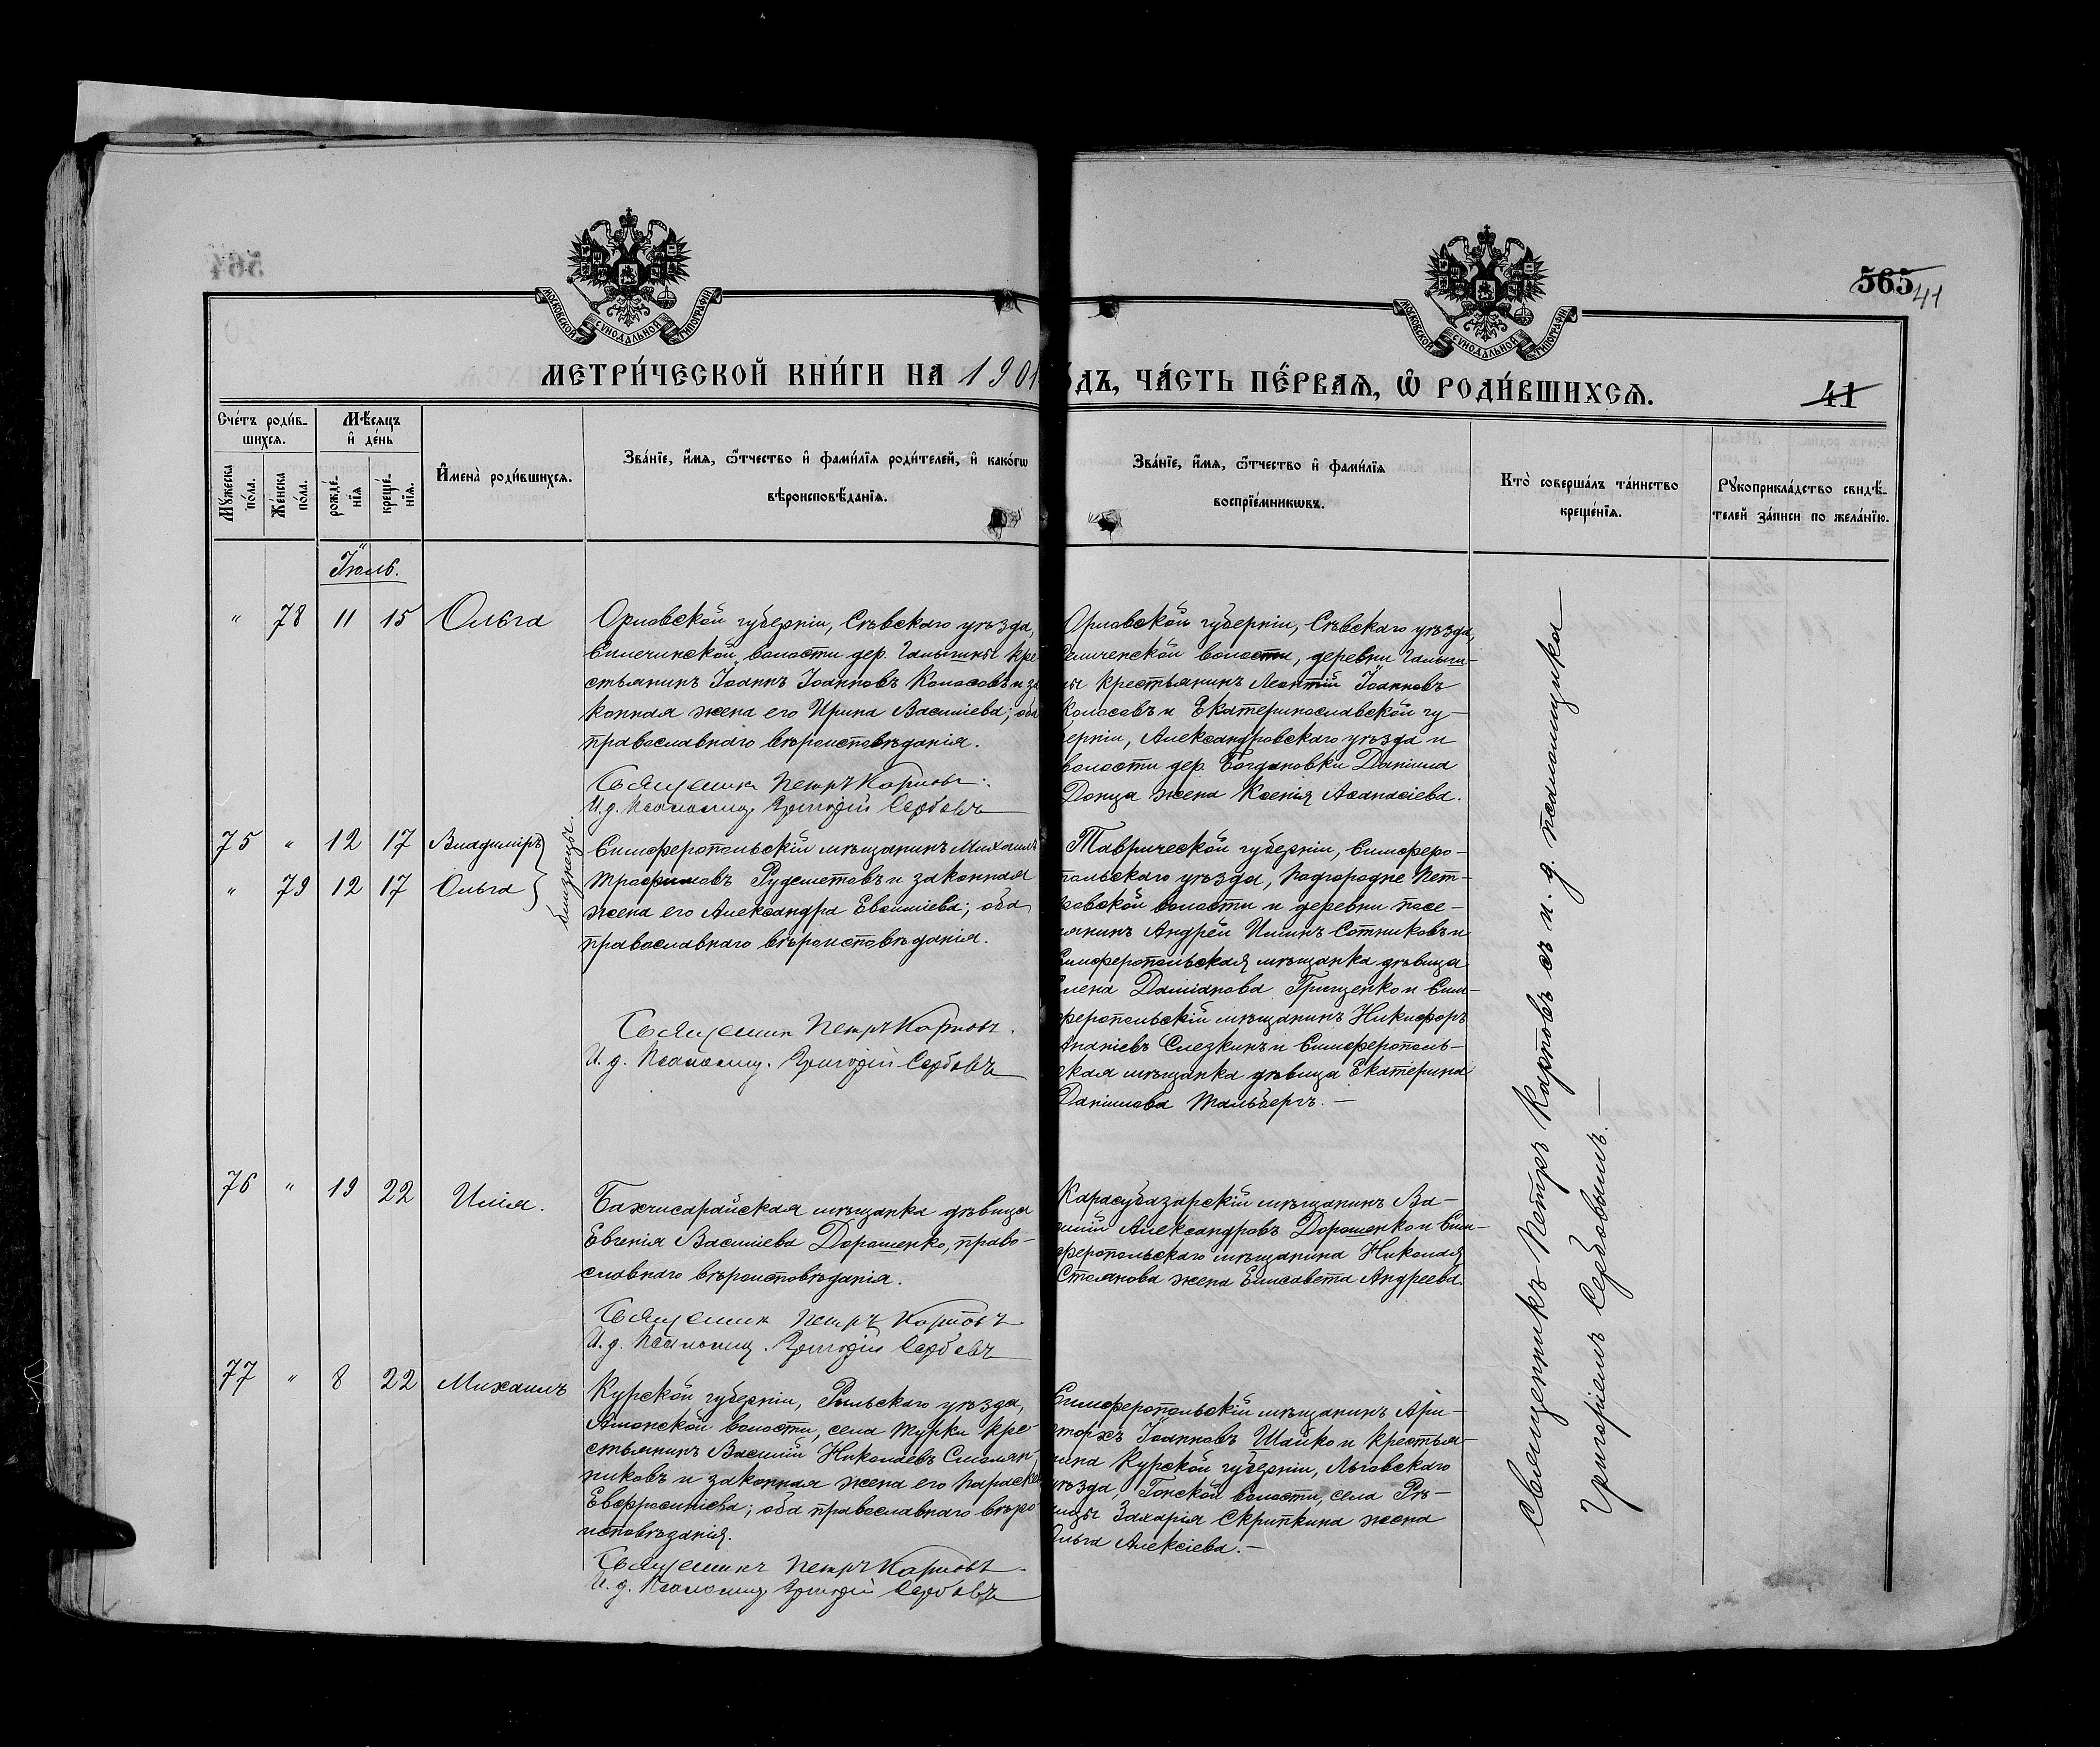 565 41
МОСКОВСКОЙ СѴНОДАЛЬНОЙ ТИПОГРАФІИ
МОСКОВСКОЙ СѴНОДАЛЬНОЙ ТИПОГРАФІИ
МЕТРИ́ЧЕСКОЙ КНИ́ГИ НА 1901
ОДЪ, ЧА́СТЬ ПЕ́РВАѦ, Ѿ РОДИ́ВШИХСѦ.
41
Сче́тъ роди́в-
шихсѧ.
Мѣ́сѧцъ
и҆ де́нь
Мꙋ́жеска по́ла.
Же́нска по́ла.
рожде́-
нїѧ
креще́-
нїѧ.
И҆мена̀ роди́вшихсѧ.
Зва́нїе, и҆́мѧ, ѻ҆́тчество и҆ фами́лїѧ роди́телей, и҆ како́гѡ
вѣроисповѣ́данїѧ.
Зва́нїе, и҆́мѧ, ѻ҆́тчество и҆ фами́лїѧ
воспрїе́мникѡвъ.
Кто̀ соверша́лъ та́инство
креще́нїѧ.
Рꙋкоприкла́дство свидѣ́-
телей за́писи по жела́нїю.
Іюль.
" 78 11 15 Ольга
Орловской губерніи, Сѣвскаго уѣзда,
волости дер. кре-
стьянинъ Іоаннъ Іоанновъ Колосовъ и за
конная жена его Ирина Васильева; оба
православнаго вѣроисповѣданія.
Священникъ Петръ Карповъ.
И. д. Псаломщ. Григорій Сербовъ
Орловской губерніи, Сѣвскаго уѣзда,
волости, деревни
ны крестьянинъ Леонтій Іоанновъ
Колосовъ и Екатеринославской гу-
берніи, Александровскаго уѣзда и
волости дер. Богдановки Даніила
Донца жена Ксенія Аѳанасіева.
75 " 12 17 Владиміръ
" 79 12 17 Ольга
близнецы.
Симферопольскій мѣщанинъ Михаилъ
Трофимовъ и законная
жена его Александра ; оба
православнаго вѣроисповѣданія.
Священникъ Петръ Карповъ.
И. д. Псаломщ. Григорій Сербовъ
Таврической губерніи, Симферо-
польскаго уѣзда, Подгородне Пет-
ровской волости и деревни посе-
янинъ Андрей Ильинъ Сотниковъ и
Симферопольская мѣщанка дѣвица
лена Даміанова Грищенко и Сим-
феропольскій мѣщанинъ Никифоръ
Ананіевъ Слезкинъ и Симферополь-
ская мѣщанка дѣвица Екатерина
Даніилова Тальбергъ. —
76 " 19 22 Илія.
Бахчисарайская мѣщанка дѣвица
Евгенія Васильева Дорошенко, право-
славнаго вѣроисповѣданія.
Священникъ Петръ Карповъ.
И. д. Псаломщ. Григорій Сербовъ
Карасубазарскій мѣщанинъ Ва-
силій Александровъ Дорошенко и Сим-
феропольскаго мѣщанина Николая
Стоянова жена Елисавета Андреева.
77 " 8 22 Михаилъ
Курской губерніи, Рыльскаго уѣзда,
Амонской волости, села Турки кре-
стьянинъ Василій Николаевъ Смолян-
никовъ и законная жена его Параске
Евфросиніева; оба православнаго вѣро-
исповѣданія.
Священникъ Петръ Карповъ.
И. д. Псаломщ. Григорій Сербовъ
Симферопольскій мѣщанинъ Ари-
стархъ Іоанновъ Шайко и крестья-
нина Курской губерніи, Льговскаго
уѣзда, волости, села
Захарія Скрипкина жена
Ольга Алексіева. —
Священникъ Петръ Карповъ съ и. д. псаломщика
Григоріемъ Сербовымъ. —